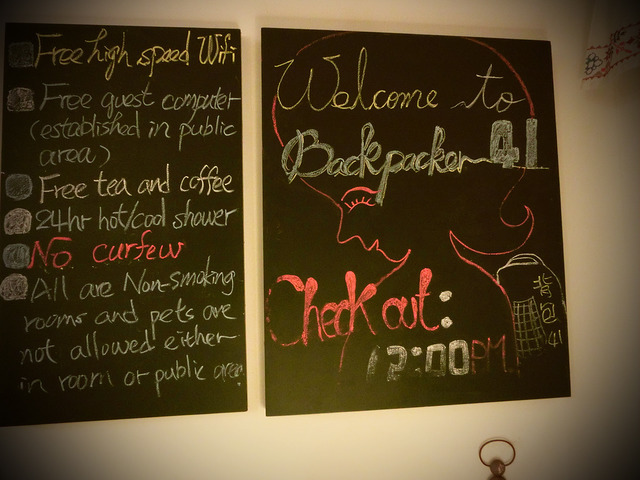 Free high speed Wifi
Free guest computer
(established in public
area)
Free tea and coffee
24hr hot/cool shower
No curfew
All are Non-smoking
rooms and pets are
not allowed either
in room or public area
Welcome to
Backpacker 41
Check out:
12:00PM
背包41